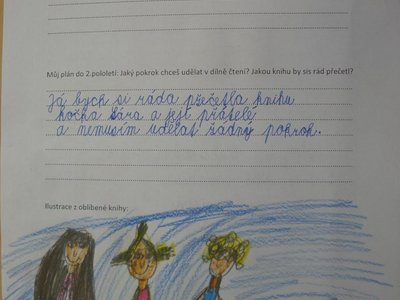 Můj plán do 2.pololetí: Jaký pokrok chceš udělat v dílně čtení? Jakou knihu by sis rád přečetl?
Já bych si ráda přečetla knihu
kočka Sára a její přátelé
a nemusím udělat žádný pokrok.
Ilustrace z oblíbené knihy: